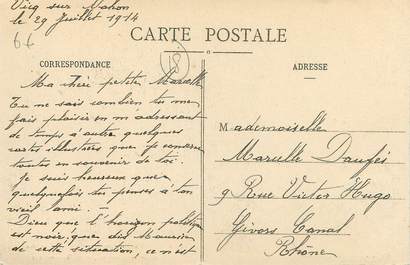 Vicq sur Nahon
le 29 Juillet 1914
64
18
CARTE POSTALE
CORRESPONDANCE
ADRESSE
Ma chère petite Marcelle
Tu ne sais combien tu me
fais plaisir en m adressant
de temps à autre quelques
cartes illustrées que je conserve
toutes en souvenir de toi.
Je suis heureuse que
quelquefois tu penses à ton
vieil ami.
Dieu que l'horizon politique
est noir, que dis Maurice
de cette situation, ce n'est
Mademoiselle
Marcelle
9 Rue Victor Hugo
Givors Canal
Rhône